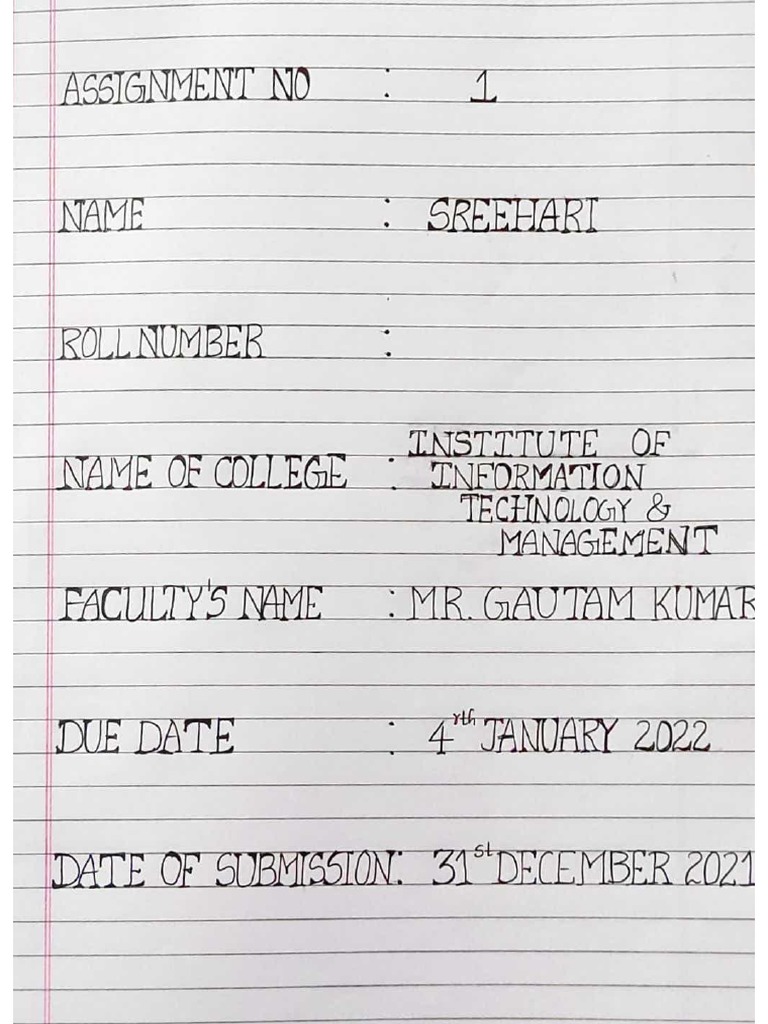 ASSIGNMENT NO : 1
NAME : SREEHARI
ROLL NUMBER :
INSTITUTE OF
NAME OF COLLEGE : INFORMATION
TECHNOLOGY &
MANAGEMENT
FACULTY'S NAME : MR. GAUTAM KUMAR
DUE DATE : 4rth JANUARY 2022
DATE OF SUBMISSION: 31st DECEMBER 2021